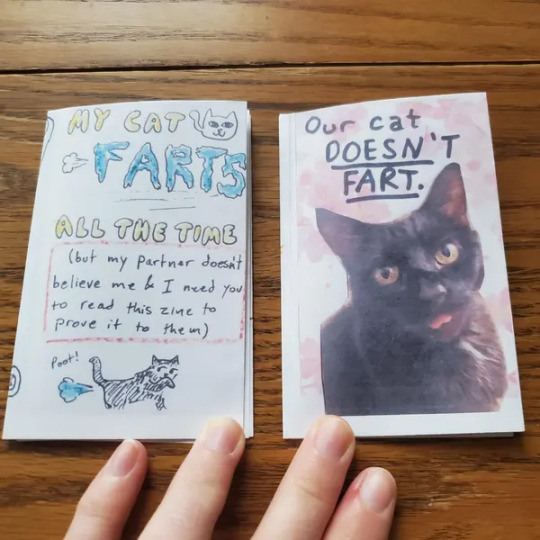 MY CAT
FARTS
ALL THE TIME
(but my partner doesn't
believe me & I need you
to read this zine to
prove it to them)
Poot!
Our cat
DOESN'T
FART.